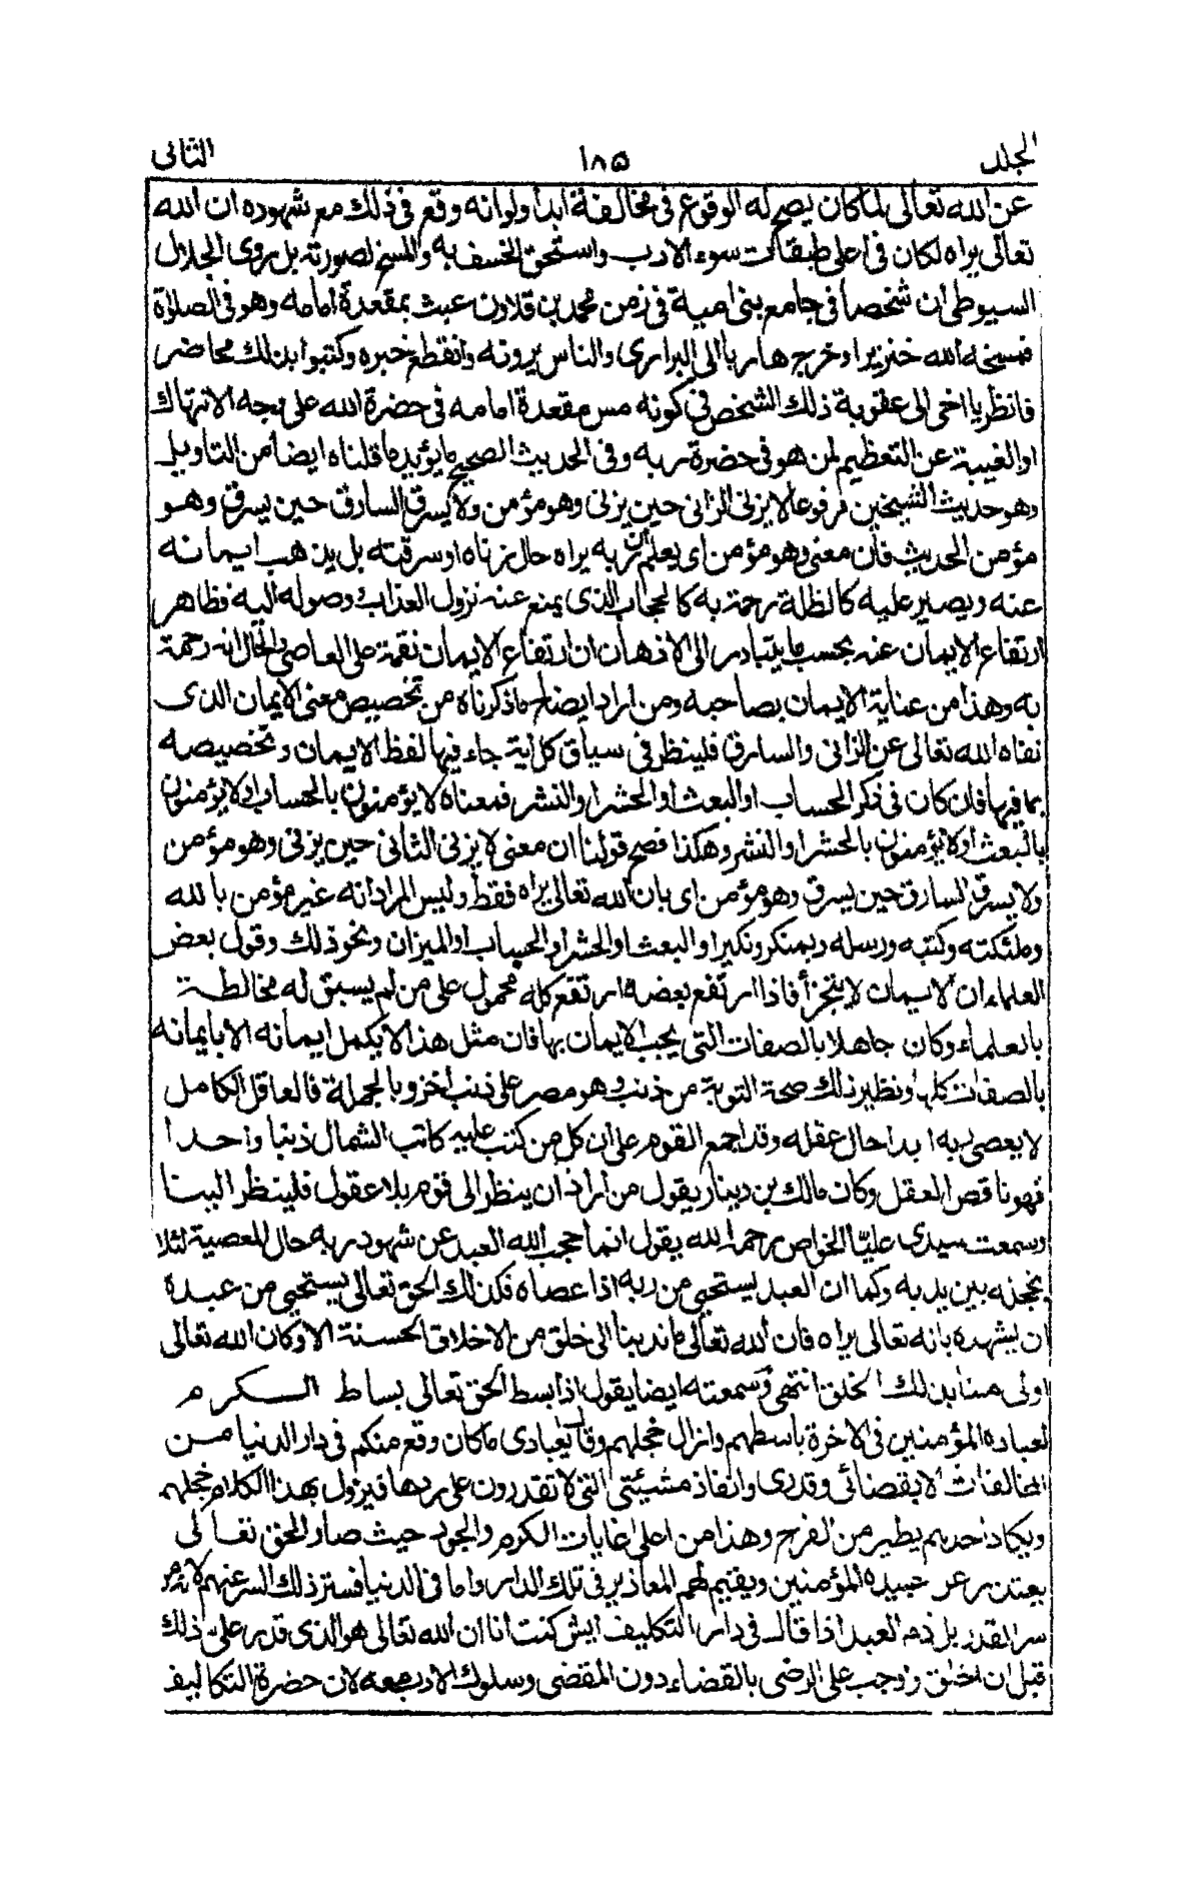 الجلد ١٨٥ الثانى
عن الله تعالى لما كان يصح له الوقوع فى مخالفة ابدا ولو انه وقع فى ذلك مع شهوده ان الله
تعالى يراه لكان فى اعلى طبقات سوء الادب واستحق الخسف به والمسخ لصورته بل روى الجلال
السيوطى ان شخصا فى جامع بنى امية فى زمن محمد بن قلاون عبث بمقعدة امامه وهو فى الصلاة
فمسخه الله خنزيرا وخرج هاربا الى البرارى والناس يرونه وانقطع خبره وكتبوا بذلك محاضر
فانظر يا اخى الى عقوبة ذلك الشخص فى كونه مس مقعدة امامه فى حضرة الله على وجه الانتهاك
او الغيبة عن التعظيم لمن هو فى حضرة ربه وفى الحديث الصحيح ما يؤيد ما قلناه ايضا من التاويل
وهو حديث الشيخين مرفوعا لا يزنى الزانى حين يزنى وهو مؤمن ولا يسرق السارق حين يسرق وهو
مؤمن الحديث فان معنى وهو مؤمن اى يعلم ان ربه يراه حال زناه او سرقته بل يذهب ايمانه
عنه ويصير عليه كالظلة رحمة به كالحجاب الذى يمنع عنه نزول العذاب وصوله اليه فظاهر
ارتفاع الايمان عنه بحسب ما يتبادر الى الاذهان ان ارتفاع الايمان نقمة على العاصى والحال انه رحمة
به وهذا من عناية الايمان بصاحبه ومن اراد ايضاح ما ذكرناه من تخصيص معنى الايمان الذى
نفاه الله تعالى عن الزانى والسارق فلينظر فى سياق كل اية جاء فيها لفظ الايمان وتخصيصه
بما فيها فان كان فى ذكر الحساب او البعث او الحشر او النشر فمعناه لا يؤمنون بالحساب او لا يؤمنون
بالبعث او لا يؤمنون بالحشر او النشر وهكذا فصح قولنا ان معنى لا يزنى الثانى حين يزنى وهو مؤمن
ولا يسرق السارق حين يسرق وهو مؤمن اى بان الله تعالى يراه فقط وليس المراد انه غير مؤمن بالله
وملئكته وكتبه ورسله وبمنكر ونكير او البعث او الحشر او الحساب او الميزان ونحو ذلك وقول بعض
العلماء ان الايمان لا يتجزأ فاذا ارتفع بعضه ارتفع كله محمول على من لم يسبق له مخالطة
بالعلماء وكان جاهلا بالصفات التى يجب الايمان بها فان مثل هذا لا يكمل ايمانه الا بايمانه
بالصفات كلها ونظير ذلك صحة التوبة من ذنب وهو مصر على ذنب اخر وبالجملة فالعاقل الكامل
لا يعصى ربه ابدا حال عقله وقد اجمع القوم على ان كل من كتب عليه كاتب الشمال ذنبا واحدا
فهو ناقص العقل وكان مالك بن دينار يقول من اراد ان ينظر الى قوم بلا عقول فلينظر الينا
وسمعت سيدى عليا الخواص رحمه الله يقول انما حجب الله العبد عن شهود ربه حال المعصية لئلا
يخجله بين يديه وكما ان العبد يستحيى من ربه اذا عصاه فكذلك الحق تعالى يستحيى من عبده
ان يشهده بانه تعالى يراه فان الله تعالى ما ندبنا الى خلق من الاخلاق الحسنة الا وكان الله تعالى
اولى منا بذلك الخلق انتهى وسمعته ايضا يقول اذا بسط الحق تعالى بساط الكرم
لعباده المؤمنين فى الاخرة باسطهم وازال خجلهم وقال يعبادى ما كان وقع منكم فى دار الدنيا من
المخالفات الا بقضائى وقدرى وانفاذ مشيئتى التى لا تقدرون على ردها فيزول بهذا الكلام خجلهم
ويكاد احدهم يطير من الفرح وهذا من اعلى غايات الكرم والجود حيث صار الحق تعالى
يعتذر عن عبيده المؤمنين ويقيم لهم المعاذير فى تلك الدار واما فى الدنيا فستر ذلك السر عنهم لانه من
سر القدر بل ذم العبد اذا قال فى دار التكليف ايش كنت انا ان الله تعالى هو الذى قدر على ذلك
قبل ان اخلق واوجب على الرضى بالقضاء دون المقضى وسلوك الادب معه لان حضرة التكاليف